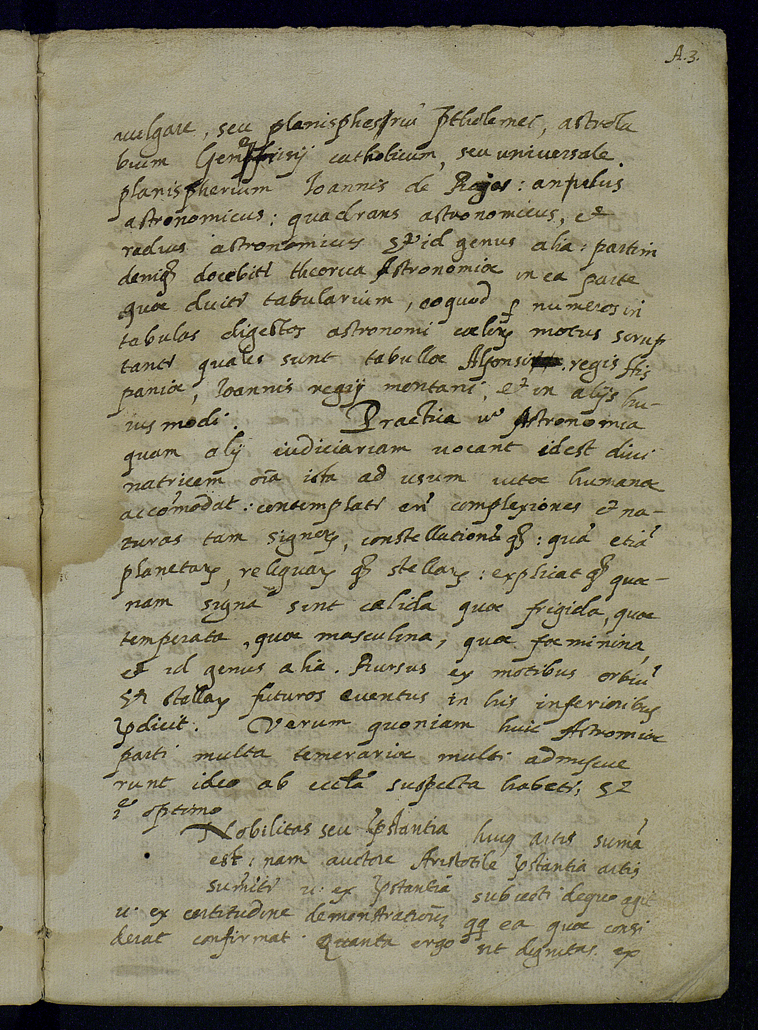 A.3.
vulgare, seu planispherium ptholemei, astrola
bium Gemmefrisij catholicum, seu universale
planispherium Ioannis de Rojas: anulus
astronomicus: quadrans astronomicus, et
radius astronomicus et id genus alia: partim
deniq; docebitr theorica Astronomiæ in ea parte
quæ dicitr tabularium, eo quod p numeros in
tabulas digestos astronomi cælorum motus scrup
tantr quales sunt tabullæ Alfonsi regis His
paniæ, Ioannis regij montani, et in alijs hu-
ius modi. Practica uo Astronomia
quam alij iudiciariam uocant idest diui
natricem oia ista ad usum uitæ humanæ
accomodat: contemplatr eni complexiones et na-
turas tam signorum, constellationu q;: qua etia
planetarum, reliquarum q; stellarum: explicat q; quæ-
nam signa sint calida quæ frigida, quæ
temperata, quæ masculina, quæ foeminina,
et id genus alia. Rursus ex motibus orbiu
et stellarum futuros euentus in his inferioribus
pdicit. Verum quoniam huic Astromiæ
parti multa temerariæ multi admiscue
runt ideo ab eccla suspecta habetr; et
optimo
Nobilitas seu pstantia huius artis suma
est: nam auctore Aristotile pstantia artis
sumitr u: ex pstantia subiecti de quo agit
u: ex certitudine demonstrationis qq ea quæ consi
derat confirmat. Quanta ergo sit dignitas ex